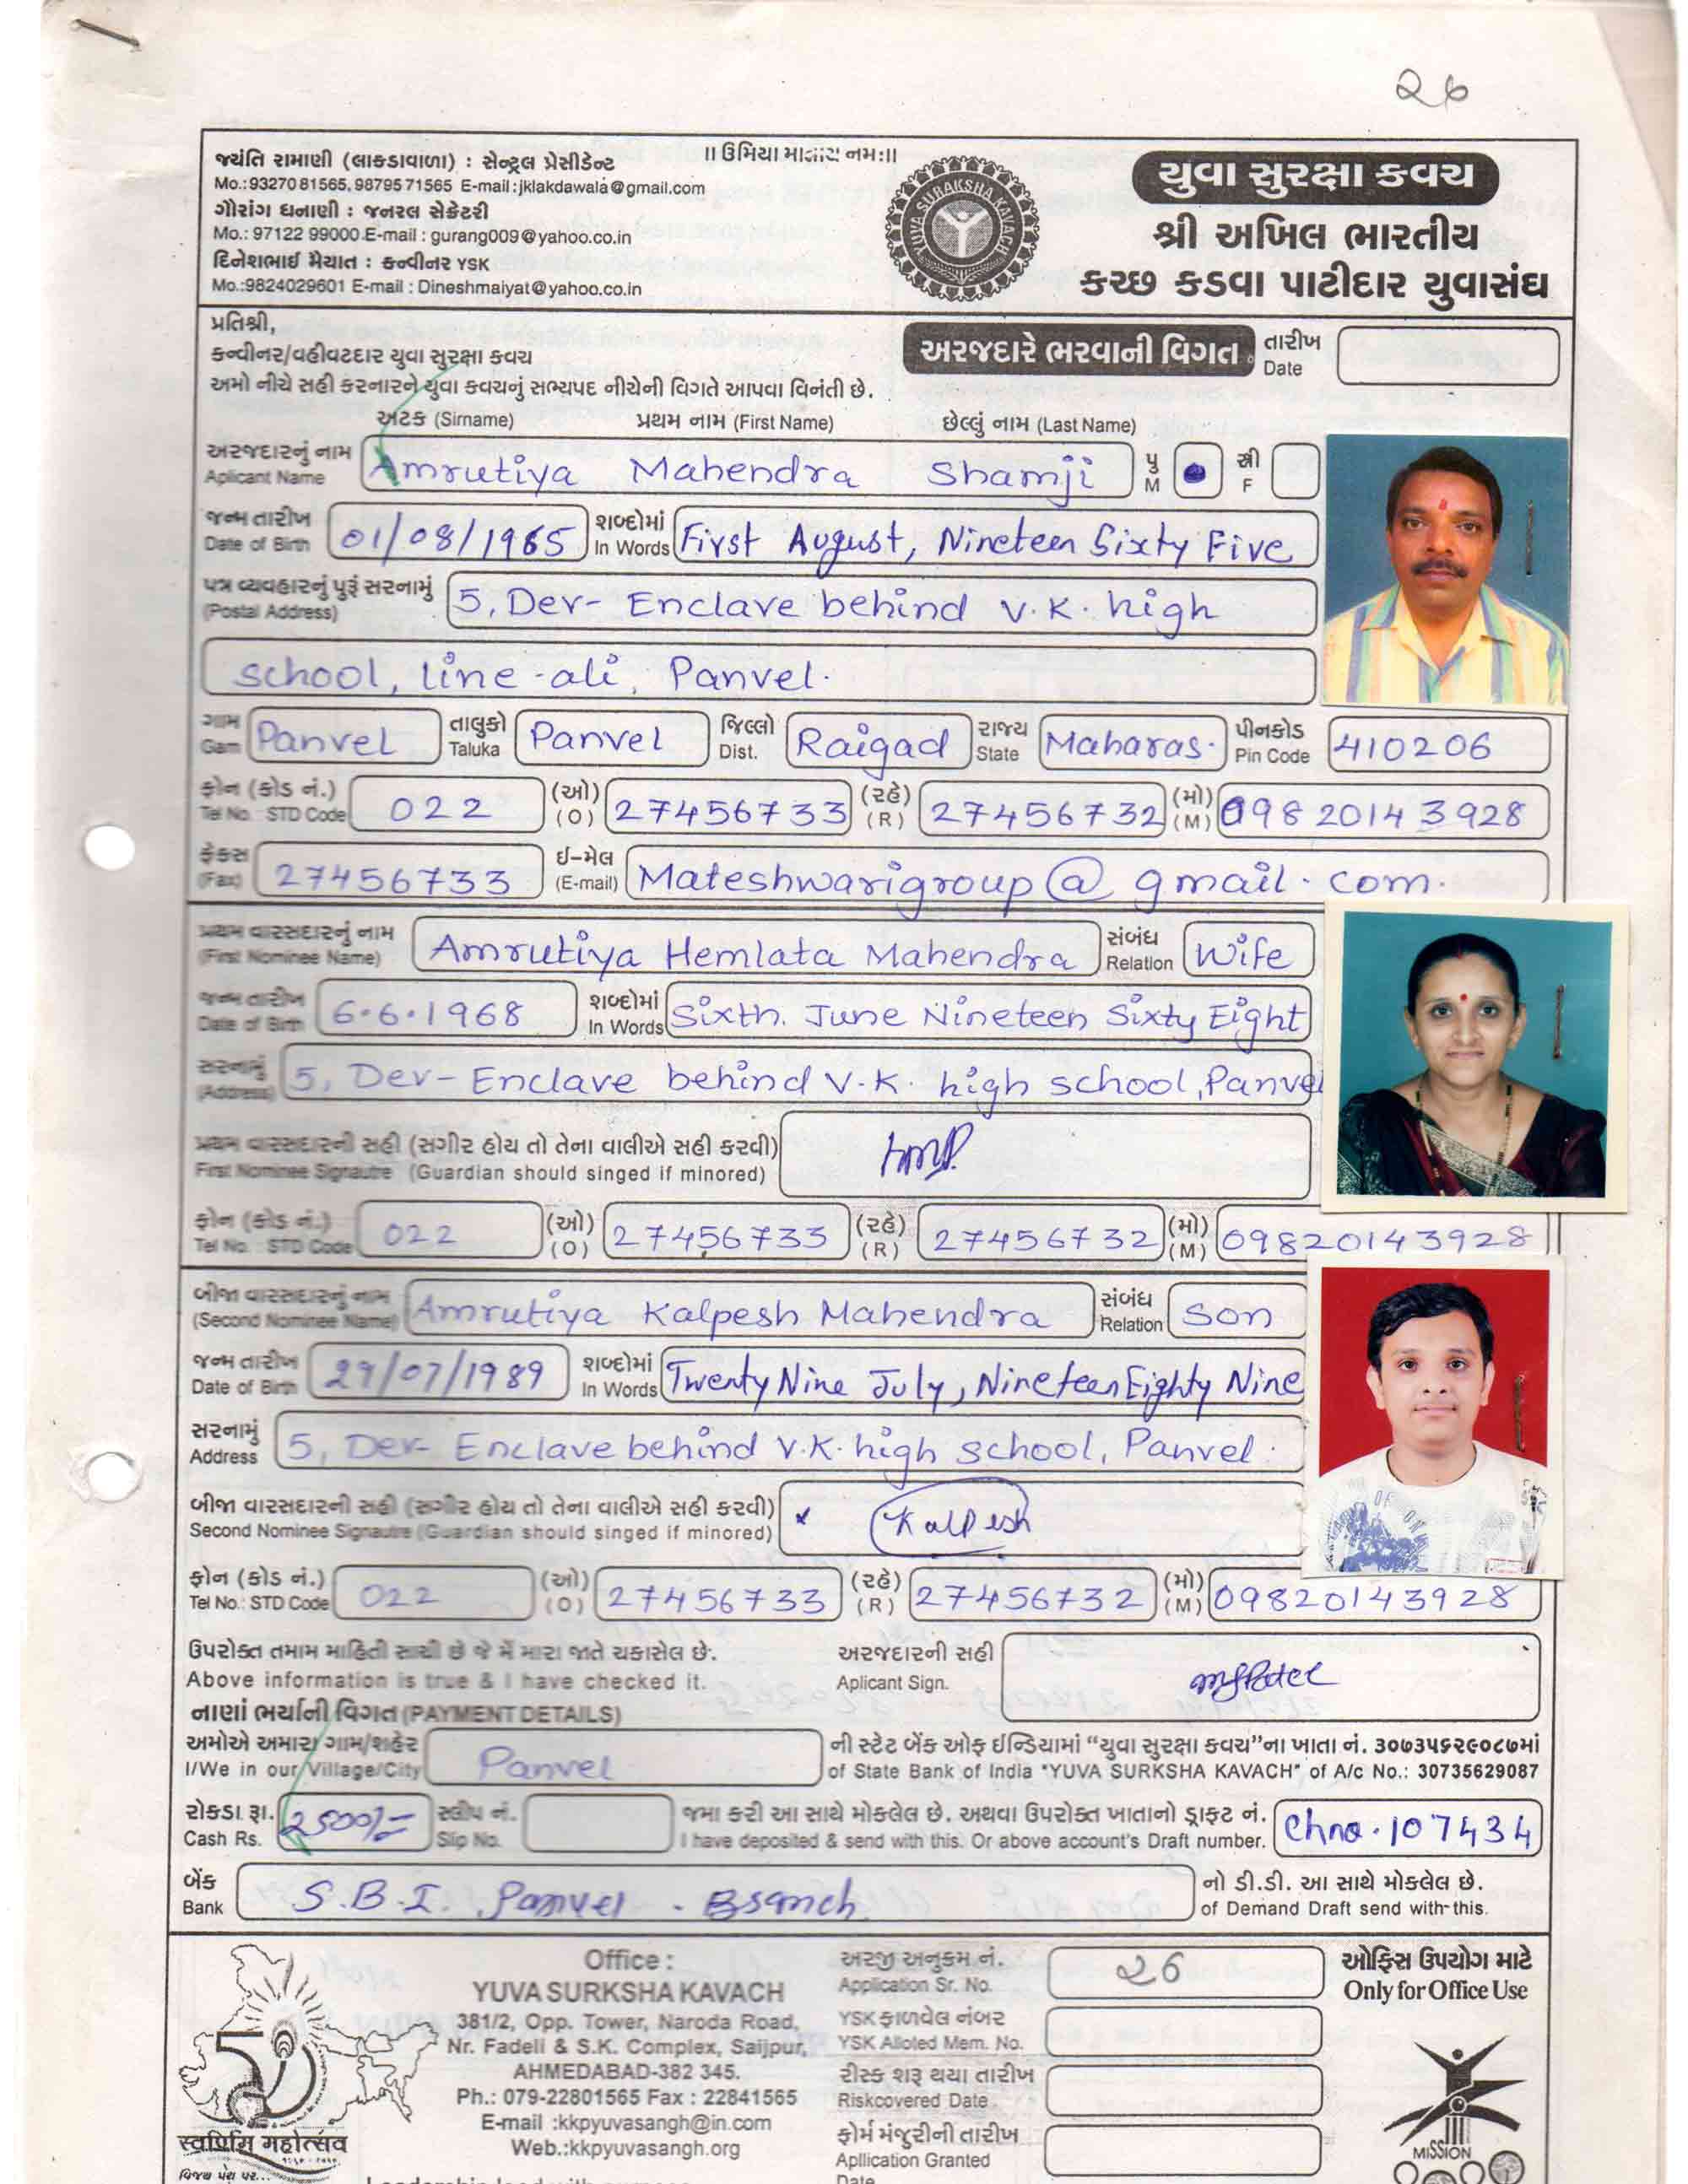 26
જયંતિ રામાણી (લાકડાવાળા) : સેન્ટ્રલ પ્રેસીડેન્ટ
Mo.:93270 81565, 98795 71565 E-mail : jklakdawala@gmail.com
ગૌરાંગ ધનાણી : જનરલ સેક્રેટરી
Mo.: 97122 99000 E-mail : gurang009@yahoo.co.in
દિનેશભાઈ મૈયાત : કન્વીનર YSK
Mo.:9824029601 E-mail : Dineshmaiyat@yahoo.co.in
।। ઉમિયા માતાય નમ:।।
YUVA SURAKSHA KAVACH
યુવા સુરક્ષા કવચ
શ્રી અખિલ ભારતીય
કચ્છ કડવા પાટીદાર યુવાસંઘ
પ્રતિશ્રી,
કન્વીનર/વહીવટદાર યુવા સુરક્ષા કવચ
અમો નીચે સહી કરનારને યુવા કવચનું સભ્યપદ નીચેની વિગતે આપવા વિનંતી છે.
અરજદારે ભરવાની વિગત
તારીખ
Date
અટક (Sirname) પ્રથમ નામ (First Name) છેલ્લું નામ (Last Name)
અરજદારનું નામ
Aplicant Name Amrutiya Mahendra Shamji પુ M સ્ત્રી F
જન્મ તારીખ
Date of Birth 01/08/1965 શબ્દોમાં In Words First August, Nineteen Sixty Five
પત્ર વ્યવહારનું પુરૂં સરનામું
(Postal Address) 5, Dev- Enclave behind V.K. high
school, line-ali, Panvel.
ગામ Gam Panvel તાલુકો Taluka Panvel જિલ્લો Dist. Raigad રાજ્ય State Maharas. પીનકોડ Pin Code 410206
ફોન (કોડ નં.)
Tel No. STD Code 022 (ઓ) (O) 27456733 (રહે) (R) 27456732 (મો) (M) 09820143928
ફેક્સ (Fax) 27456733 ઈ-મેલ (E-mail) Mateshwarigroup@gmail.com.
પ્રથમ વારસદારનું નામ
(First Nominee Name) Amrutiya Hemlata Mahendra સંબંધ Relation Wife
જન્મ તારીખ
Date of Birth 6.6.1968 શબ્દોમાં In Words Sixth. June Nineteen Sixty Eight
સરનામું
(Address) 5, Dev- Enclave behind V.K. high school, Panvel
પ્રથમ વારસદારની સહી (સગીર હોય તો તેના વાલીએ સહી કરવી)
First Nominee Signautre (Guardian should singed if minored)
ફોન (કોડ નં.)
Tel No. : STD Code 022 (ઓ) (O) 27456733 (રહે) (R) 27456732 (મો) (M) 09820143928
બીજા વારસદારનું નામ
(Second Nominee Name) Amrutiya Kalpesh Mahendra સંબંધ Relation Son
જન્મ તારીખ
Date of Birth 29/07/1989 શબ્દોમાં In Words Twenty Nine July, Nineteen Eighty Nine
સરનામું
Address 5, Dev- Enclave behind V.K. high school, Panvel.
બીજા વારસદારની સહી (સગીર હોય તો તેના વાલીએ સહી કરવી)
Second Nominee Signautre (Guardian should singed if minored) x Kalpesh
ફોન (કોડ નં.)
Tel No.: STD Code 022 (ઓ) (O) 27456733 (રહે) (R) 27456732 (મો) (M) 09820143928
ઉપરોક્ત તમામ માહિતી સાચી છે જે મેં મારા જાતે ચકાસેલ છે.
Above information is true & I have checked it.
અરજદારની સહી
Aplicant Sign. MSPatel
નાણાં ભર્યાની વિગત (PAYMENT DETAILS)
અમોએ અમારા ગામ/શહેર Panvel ની સ્ટેટ બેંક ઓફ ઈન્ડિયામાં “યુવા સુરક્ષા કવચ”ના ખાતા નં. ૩૦૭૩૫૬૨૯૦૮૭માં
I/We in our Village/City of State Bank of India "YUVA SURKSHA KAVACH" of A/c No.: 30735629087
રોકડા રૂા. 2500/= સ્લીપ નં. જમા કરી આ સાથે મોકલેલ છે. અથવા ઉપરોક્ત ખાતાનો ડ્રાફ્ટ નં. Chno.107434
Cash Rs. Slip No. I have deposited & send with this. Or above account's Draft number.
બેંક S.B.I. Panvel - Branch નો ડી.ડી. આ સાથે મોકલેલ છે.
Bank of Demand Draft send with-this.
Office :
YUVA SURKSHA KAVACH
381/2, Opp. Tower, Naroda Road,
Nr. Fadeli & S.K. Complex, Saijpur,
AHMEDABAD-382 345.
Ph.: 079-22801565 Fax : 22841565
E-mail :kkpyuvasangh@in.com
Web.:kkpyuvasangh.org
અરજી અનુક્રમ નં.
Application Sr. No. 26
YSK ફાળવેલ નંબર
YSK Alloted Mem. No.
રીસ્ક શરૂ થયા તારીખ
Riskcovered Date
ફોર્મ મંજુરીની તારીખ
Apllication Granted
Date
ઓફિસ ઉપયોગ માટે
Only for Office Use
स्वर्णिम महोत्सव
MISSION